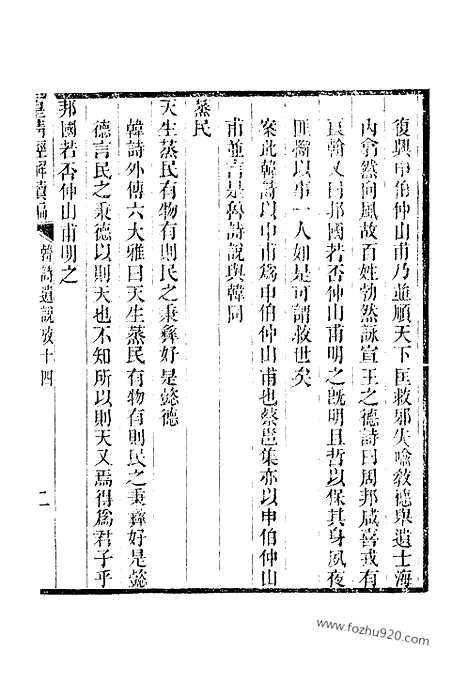 復興申伯仲山甫乃並順天下匡救邪失喻敎德舉遺士海
內翕然向風故百姓勃然詠宣王之德詩曰周邦咸喜戎有
良翰又曰邦國若否仲山甫明之旣明且哲以保其身夙夜
匪懈以事一人如是可謂救世矣
案此韓詩以申甫爲申伯仲山甫也蔡邕集亦以申伯仲山
甫並言是魯詩說與韓同
蒸民
天生蒸民有物有則民之秉彝好是懿德
韓詩外傳六大雅曰天生蒸民有物有則民之秉彝好是懿
德言民之秉德以則天也不知所以則天又焉得爲君子乎
邦國若否仲山甫明之
皇淸經解續編
韓詩遺說攷十四
二
www.fozhu920.com